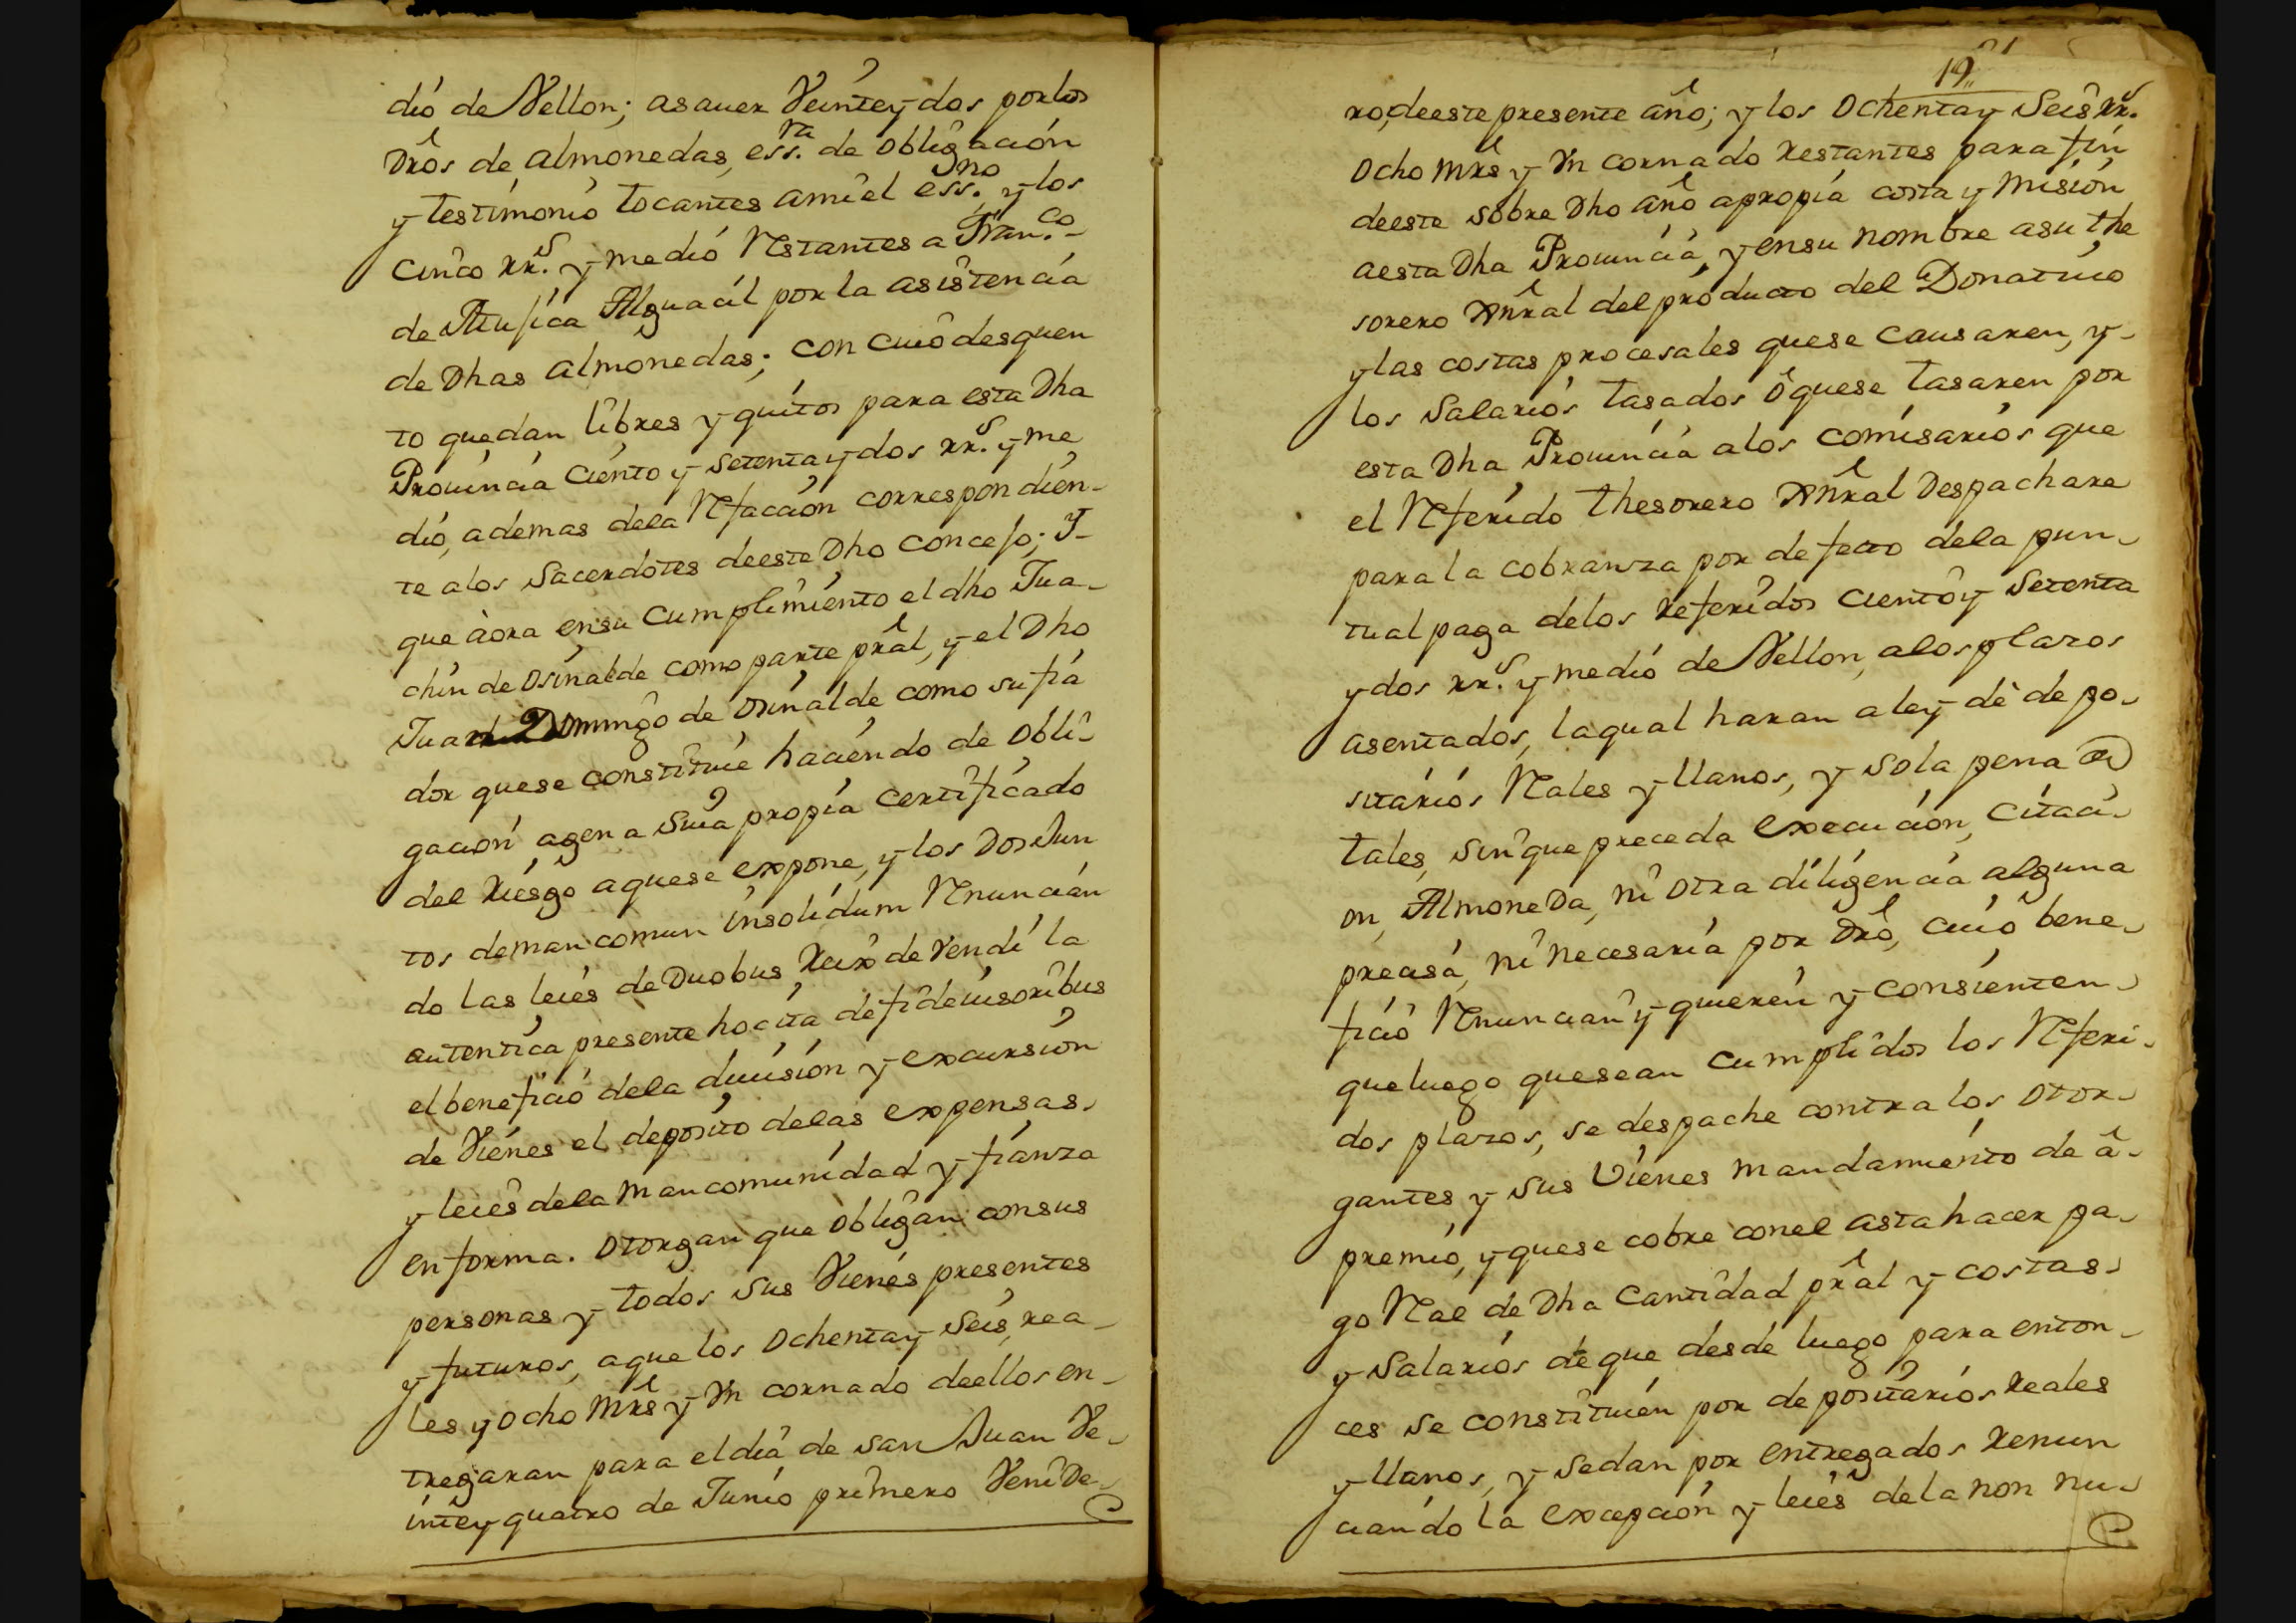 dió de Vellon; asauer Veintey dos porlos
Drôs de almonedas, ess.ra de obligación
y testimonio tocantes amiel ess.no y los
Cinco rr.s y medió Restantes a Fran.co
de Alguacil por la asistencia
de Dhas almonedas; con cuiò desquen
to quedan libres y quitos para esta Dha
Prouincia Ciento y setenta y dos rr.s y me
dió, ademas dela Refacción correspondien-
te alos Sacerdotes deeste Dho Concejo; Y-
que àora ensu Cumplimiento el dho Jua-
chin de Osinalde como parte prâl, y el Dho
Domingo de Osinalde como su fia
dor quese constituie haciendo de obli-
gación agena suia propia certificado
del riesgo aquese expone, y los Dos Jun
tos demancomun insolidum Renuncian
do las leies de Duobus Reix de Vendi la
autentica presente hocita defideiusoribus
el benefició dela diuisión y excursión
de Vienes el deposito delas expensas
y leiès dela Mancomunidad y fianza
en forma. Otorgan que obligan consus
personas y todos sus Vienes presentes
y futuros, aque los Ochentay Seis, rea-
les y Ocho Mrs y Vn cornado deellos en-
tregaran para eldià de san Juan Ve-
intey quatro de Junio primero VeniDe-
19
ro, deeste presente año; y los Ochentay Seis rr.s
Ocho Mrs y Vn cornado restantes para fin
deeste sobre Dho año apropia costa y Misión
aesta Dha Prouincia, y ensu nombre asu the
sorero Gnral del producto del Donatiuo
y las costas procesales quese Causaren, y-
los Salarios tasados òquese tasaren por
esta Dha Prouincia alos comisarios que
el Referido thesorero Gnral Despachare
para la cobranza por defecto dela pun-
tual paga delos referidos cientoy setenta
y dos rr.s y medió de Vellon, alos plazos
asentados, laqual haran a ley de depo-
sitariós Reales y llanos, y sola pena de
tales, sin que preceda execución, citaci-
on, AlmoneDa, ni otra diligencia alguna
precisa, ni necesaria por Drô, cuiò bene-
ficiò Renuncian y quieren y consienten
queluego quesean cumplidos los Referi-
dos plazos, se despache contra los otor-
gantes y sus Vienes mandamiento de à-
premió, y quese cobre conel asta hacer pa-
go Rael de Dha Cantidad prâl y costas
y Salariós deque desde luego para enton-
ces se constituien por depositariós reales
y llanos, y sedan por entregados renun
ciando la excepción y leiès dela non nu-